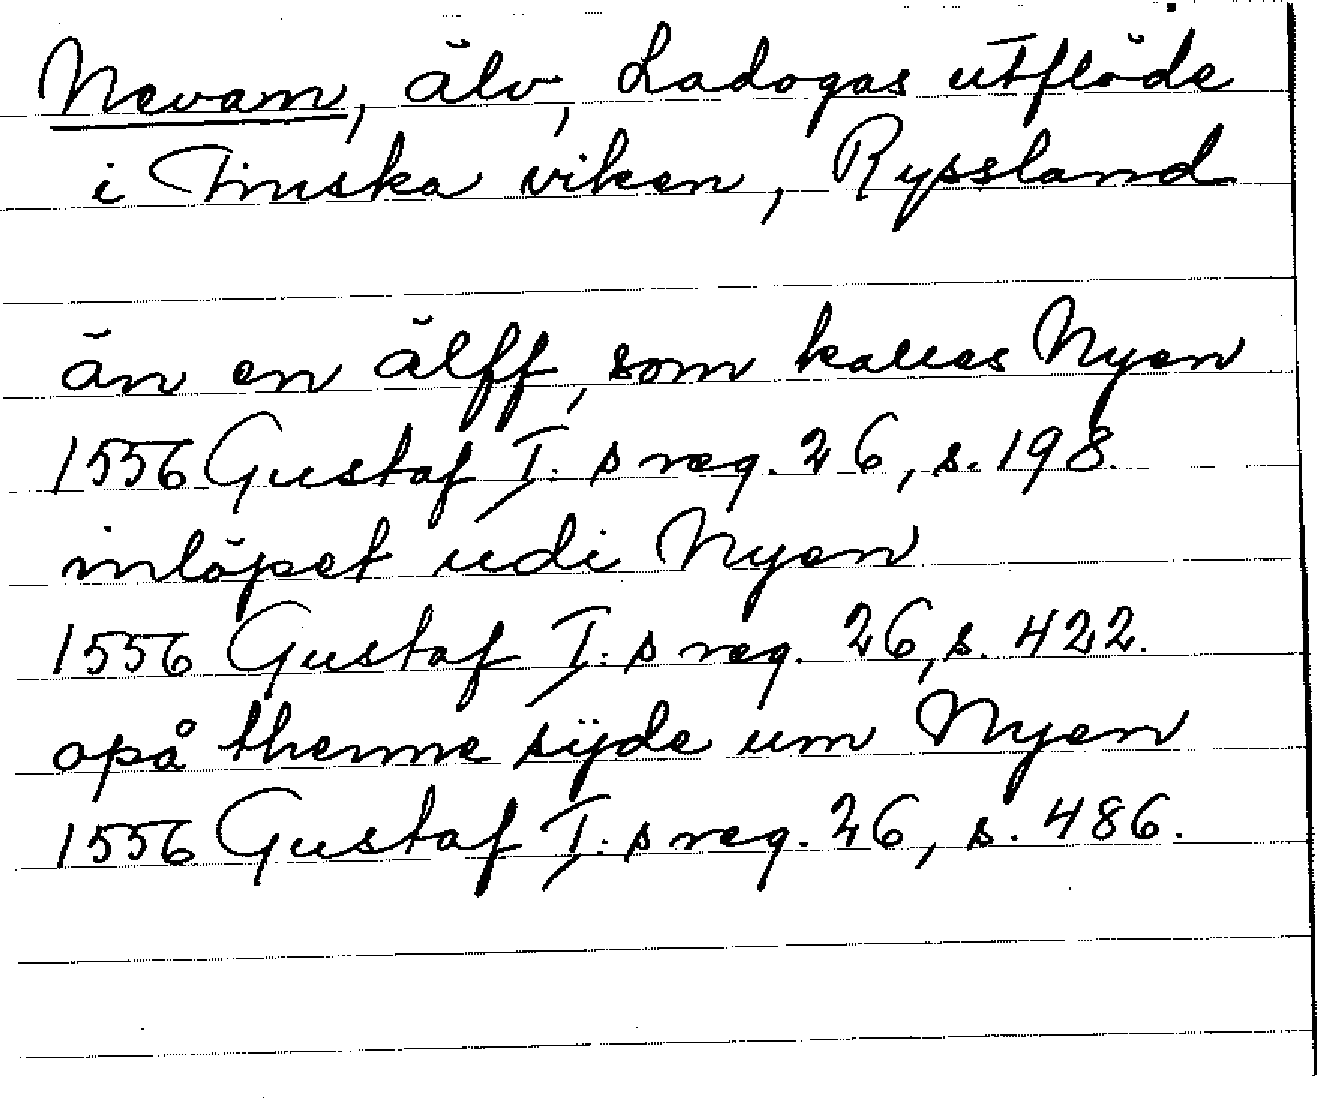 Nevan, älv, Ladogas utflöde
i Finska viken, Ryssland
än en älff, som kalles Nyen
1556 Gustaf I:s reg. 26, s. 198.
inlöpet udi Nyen
1556 Gustaf I:s reg. 26, s. 422.
opå thenne sÿde um Nyen
1556 Gustaf I:s reg. 26, s. 486.